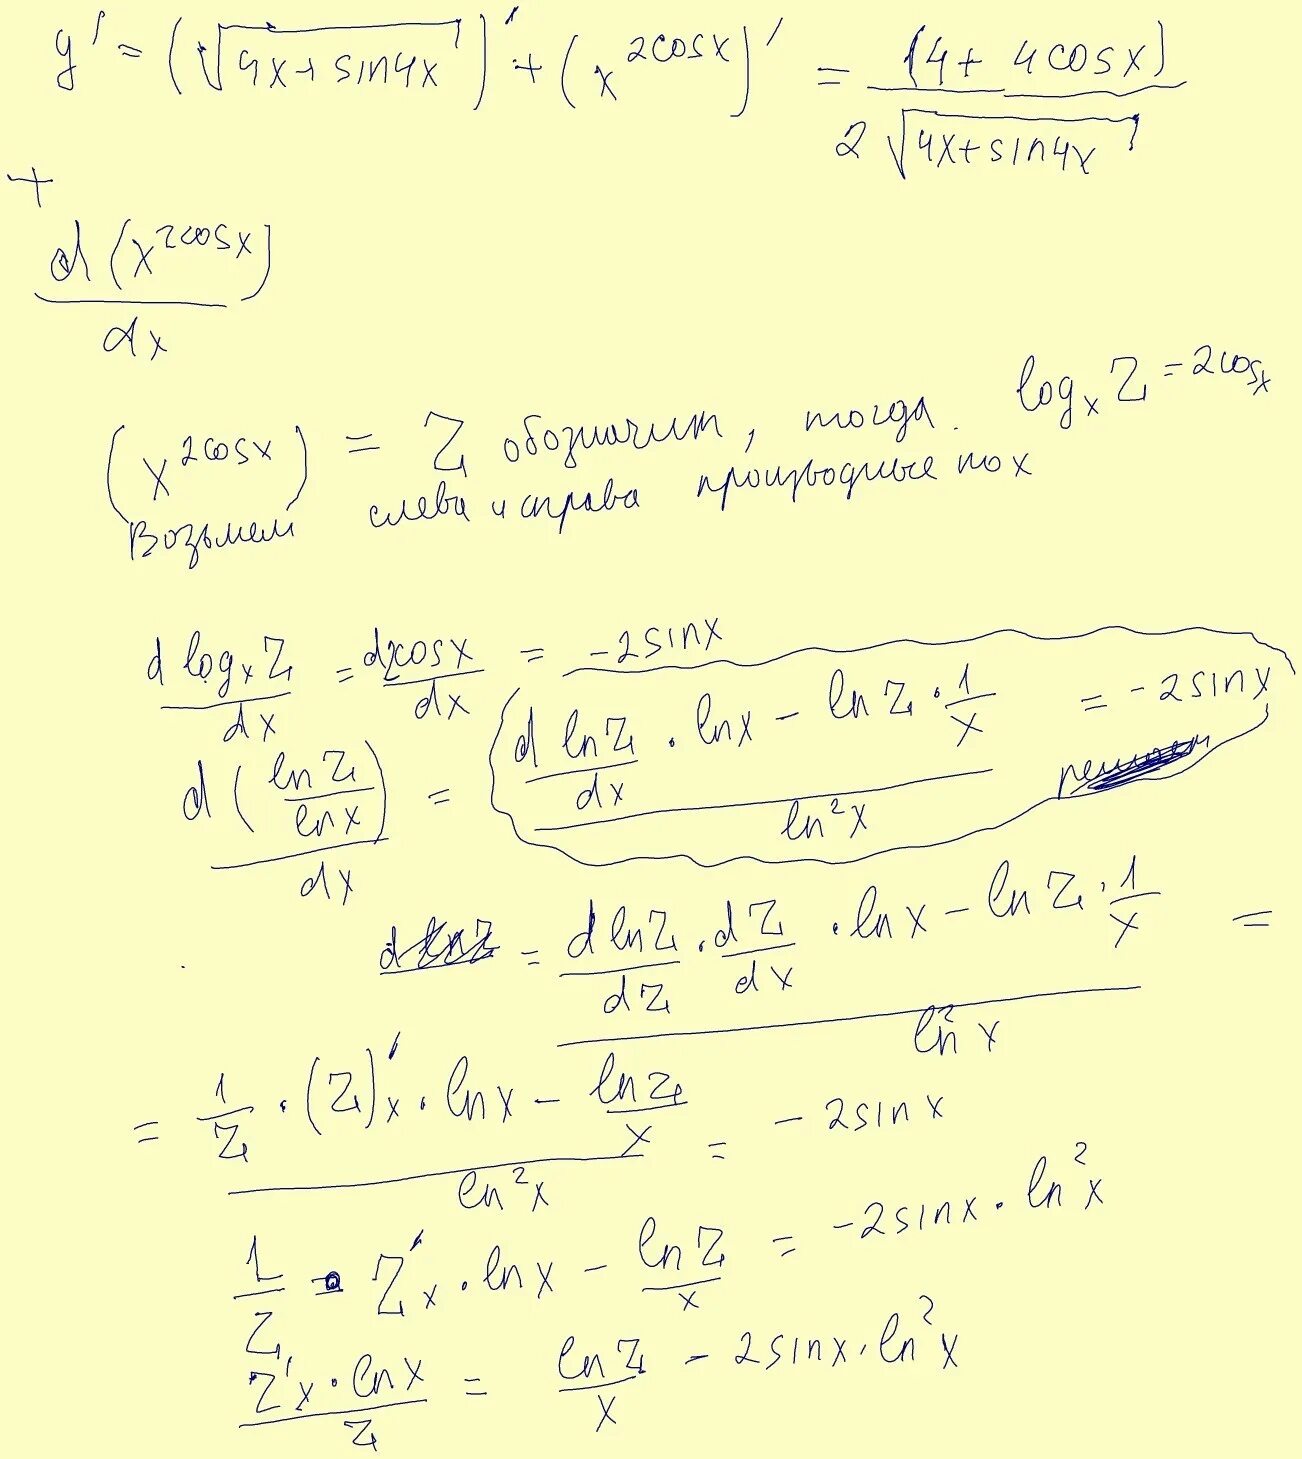 y' = (√(4x+sin4x))' + (x^{2cosx})' = (4+4cosx) / 2√(4x+sin4x)
+
d(x^{2cosx}) / dx
(x^{2cosx}) = Z обозначим, тогда log_x Z = 2cosx
Возьмем слева и справа производные по x
d log_x Z / dx = d2cosx / dx = -2sinx
d(lnZ / lnx) / dx = (d lnZ / dx · lnx - lnZ · 1/x) / ln²x = -2sinx
= (d lnZ / dZ · dZ / dx · lnx - lnZ · 1/x) / ln²x =
= (1/Z · (Z)'_x · lnx - lnZ / x) / ln²x = -2sinx
1/Z · Z'_x · lnx - lnZ / x = -2sinx · ln²x
Z'_x · lnx / Z = lnZ / x - 2sinx · ln²x